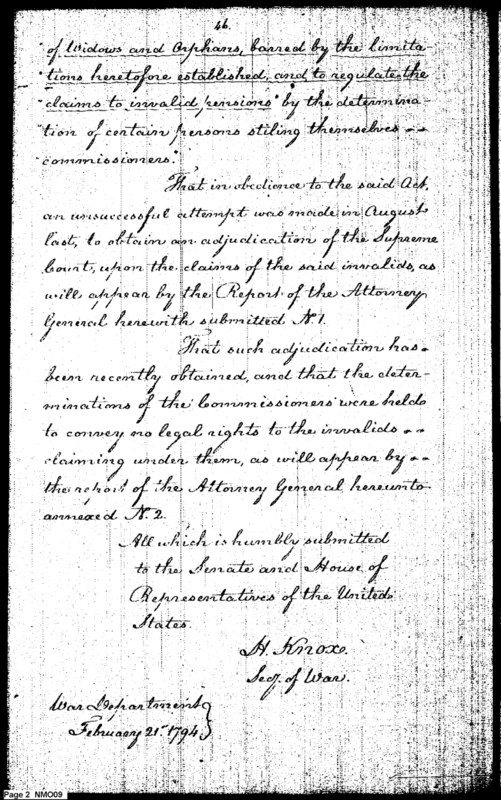 46.
"of Widows and Orphans, barred by the limita
"tions heretofore established, and to regulate the
"claims to invalid pensions" by the determina-
tion of certain persons stiling themselves
"commissioners".
That in obedience to the said Act,
an unsuccessful attempt was made in August
last, to obtain an adjudication of the Supreme
Court, upon the claims of the said invalids, as
will appear by the Report of the Attorney
General herewith submitted No 1.
That such adjudication has
been recently obtained, and that the deter-
minations of the Commissioners were held
to convey no legal rights to the invalids
claiming under them, as will appear by
the report of the Attorney General hereunto
annexed N. 2.
All which is humbly submitted
to the Senate and House of
Representatives of the United
States.
H. Knox.
Secy. of War.
War Department
February 21st 1794
Page 2 NMO09